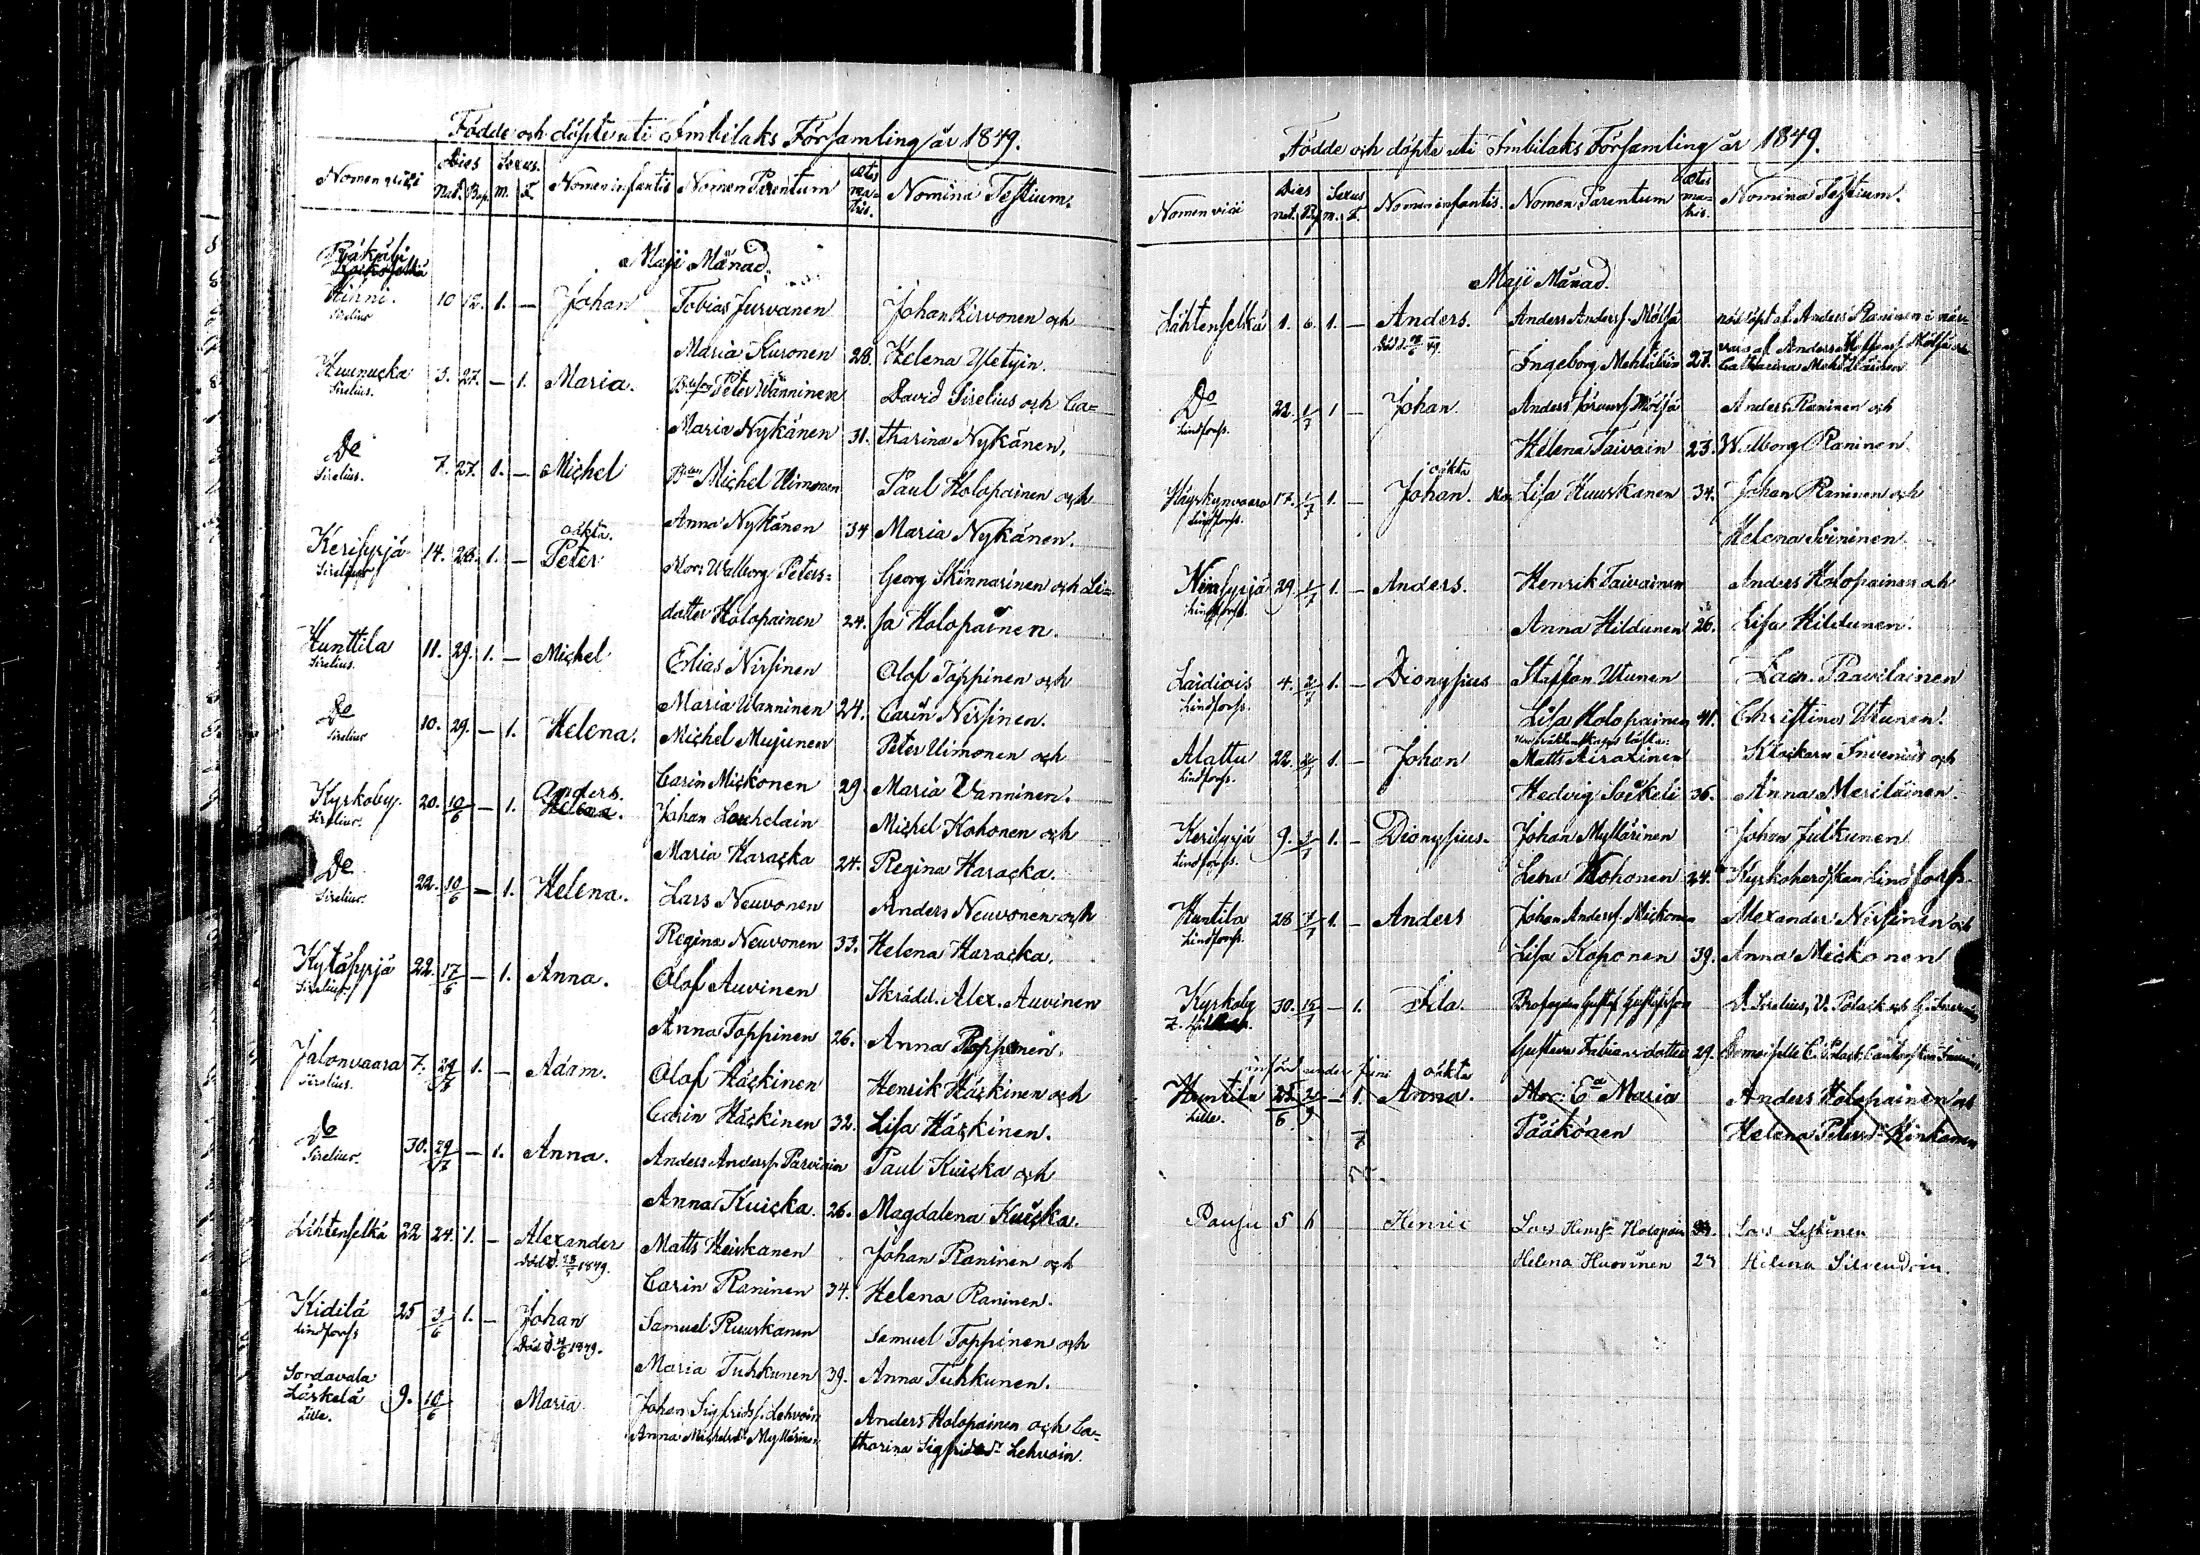 Födde och döpte uti Imbilaks Församling år 1849.
Nomen vici Dies Nat. Bap. Sexus m. f. Nomen infantis Nomen Parentum ætas matris. Nomina Testium.
Maji Månad.
Hihni. 10 12. 1. — Johan Tobias Jurvanen Johan Kirvonen och
Sirelius Maria Kuronen 28. Helena
Huunucka 3. 27. — 1. Maria. Peter Wänninen David Sirelius och Ca=
Sirelius. Maria Nykänen 31. tharina Nykänen.
Do 7. 27. 1. — Michel Michel Uimonen Paul Holopainen och
Sirelius. Anna Nykänen 34 Maria Nykänen.
oäkta.
Kerisyrjä 14. 28. 1. — Peter Mor: Walborg Peters= Georg Skinnarinen och Li=
Sirelius dotter Holopainen 24. sa Holopainen.
Hunttila 11. 29. 1. — Michel Elias Nissinen Olof Toppinen och
Sirelius. Maria Wanninen 24. Carin Nissinen.
Do 10. 29. — 1. Helena. Michel Mujunen Peter Uimonen och
Sirelius Carin Mickonen 29 Maria Vanninen.
Anders.
Kyrkoby. 20. 10/6 — 1. Helena. Johan Louhelain Michel Kohonen och
Sirelius. Maria Haracka 24. Regina Haracka.
Do 22. 10/6 — 1. Helena. Lars Neuvonen Anders Neuvonen och
Sirelius. Regina Neuvonen 33. Helena Haracka.
Kytösyrjä 22. 17/6 — 1. Anna. Olof Auvinen Skrädd. Alex. Auvinen
Sirelius Anna Toppinen 26. Anna Toppinen.
Jalonvaara 7. 29/7 1. — Adam. Olof Häckinen Henrik Häckinen och
Sirelius. Carin Häckinen 32. Lisa Häckinen.
Do 30. 29/7 — 1. Anna. Anders Anderss. Parviain Paul Kuicka och
Sirelius. Anna Kuicka. 26. Magdalena Kuicka.
Lähtenselkä 22 24. 1. — Alexander Matts Heiskanen Johan Raninen och
död d. 1849. Carin Raninen 34. Helena Raninen.
Kidilä 25 3/6 1. — Johan Samuel Ruuskanen Samuel Toppinen och
Lindforss Död d. 1849. Maria Tuhkunen 39. Anna Tuhkunen.
Sordavala
Läskelä 9. 10/6 Maria Johan Sigfridss. Lehvoin Anders Holopainen och Ca=
Lille. Anna Michelsdr Myllärinen tharina Sigfridsdr Lehvoin.
Födde och döpte uti Imbilaks Församling år 1849.
Nomen vici Dies nat. Bap. Sexus m. f. Nomen infantis. Nomen Parentum ætas matris. Nomina Testium.
Maji Månad.
Lähtenselkä 1. 6. 1. — Anders. Anders Anderss. Mölsä nöddöpt af Anders Raninen i när-
Ingeborg Mehtäläin 27. Catharina Mehtäläinen
Do 22. 1/7 1 — Johan. Anders Mölsä Anders Raninen och
Lindforss. Helena Taivain 23. Walborg Raninen.
oäkta
17. 1/7 1. — Johan. Mor. Lisa Huuskanen 34. Johan Raninen och
Lindforss. Helena Soininen
29. 1/7 1. — Anders. Henrik Taivainen Anders Holopainen och
Lindforss. Anna Hildunen 26. Lisa Hildunen.
4. 2/7 1. — Dionysius Staffan Utunen Paavilainen
Lindforss. Lisa Holopainen 41. Christina Utunen.
Alattu 22. 2/7 1. — Johan Matts Airaxinen Klockarn Invenius och
Lindforss. Hedvig Soikeli 36. Anna Meriläinen.
Kerisyrjä 9. 3/7 1. — Dionysius. Johan Myllärinen Johan Julkunen
Lindforss. Lena Kohonen 24. Kyrkoherdskan Lindforss.
Huntila 28 7/7 1. — Anders Johan Anderss. Mickonen Alexander Nissinen och
Lindforss. Lisa Koponen 39. Anna Mickonen
Kyrkoby 30. 15/7 — 1. Ida. Gustaf Gustafsson D. Sirelius,
Gustava Fabiansdotter 29.
införd under Juni oäkta
Huntila 25/6 2/9 — 1. Anna. Mor: Maria Anders Holopainen och
Lille. Pääkönen Helena Petersdr Kinkanen
Pausu 5 6 Henric Lars Henrss. Holopain Lars Leskinen
Helena Huovinen 27 Helena Silvendoin.